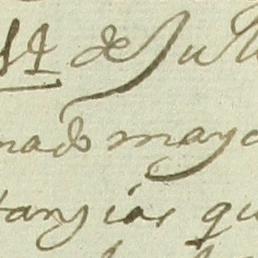 14 de Juli
nado mayo
tanzias qu